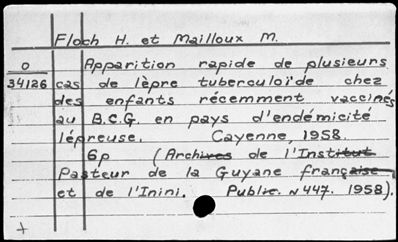 Floch H. et Mailloux M.
O Apparition rapide de plusieurs
34126 cas de lèpre tuberculoïde chez
des enfants récemment vaccinés
au B.C.G. en pays d'endémicité
lépreuse. Cayenne, 1958.
6p (Archives de l'Institut
Pasteur de la Guyane française
et de l'Inini. Public. N 447. 1958).
+